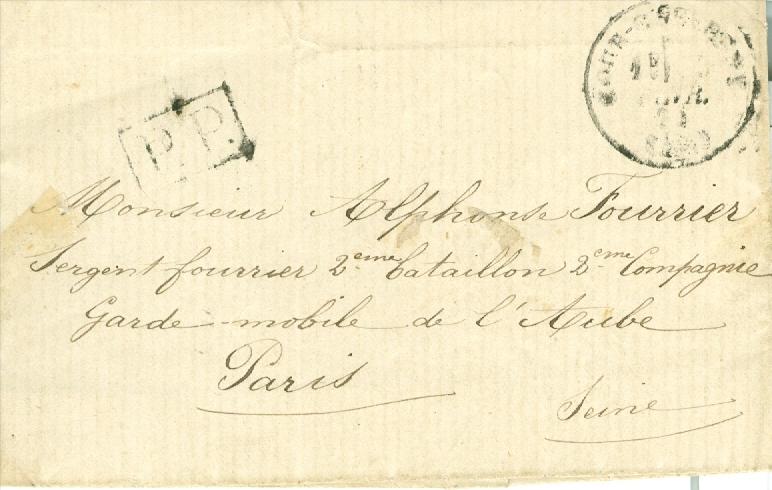 P.P.
Monsieur Alphonse Fourrier
Sergent fourrier 2eme bataillon 2eme Compagnie
Garde-mobile de l'Aube
Paris
Seine